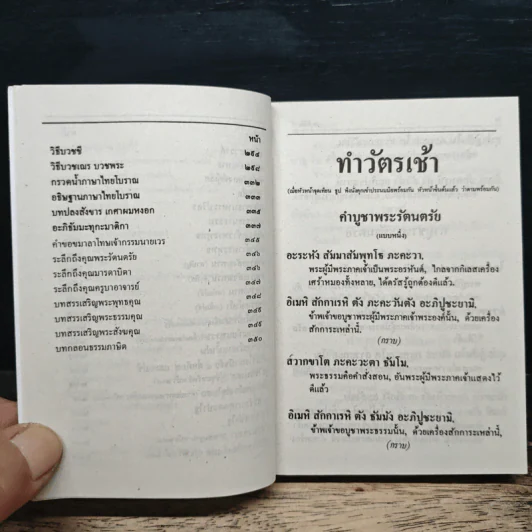 หน้า
วิธีบวชชี ๒๙๔
วิธีบวชเณร บวชพระ ๒๙๘
กรวดน้ำภาษาไทยโบราณ ๓๓๒
อธิษฐานภาษาไทยโบราณ
บทปลงสังขาร เกศาผมหงอก ๓๓๕
อะภิธัมมะทุกะมาติกา ๓๓๗
คำขอขมาลาโทษเจ้ากรรมนายเวร ๓๔๕
ระลึกถึงคุณพระรัตนตรัย ๓๔๖
ระลึกถึงคุณมารดาบิดา
ระลึกถึงคุณครูบาอาจารย์
บทสรรเสริญพระพุทธคุณ ๓๔๘
บทสรรเสริญพระธรรมคุณ ๓๔๙
บทสรรเสริญพระสังฆคุณ ๓๔๙
บทกลอนธรรมภาษิต ๓๕๐
ทำวัตรเช้า
(เมื่อหัวหน้าจุดเทียน ธูป พึงนั่งคุกเข่าประณมมือพร้อมกัน หัวหน้าขึ้นต้นแล้ว ว่าตามพร้อมกัน)
คำบูชาพระรัตนตรัย
(แบบหนึ่ง)
อะระหัง สัมมาสัมพุทโธ ภะคะวา,
พระผู้มีพระภาคเจ้าเป็นพระอรหันต์, ไกลจากกิเลสเครื่อง
เศร้าหมองทั้งหลาย, ได้ตรัสรู้ถูกต้องดีแล้ว.
อิเมหิ สักกาเรหิ ตัง ภะคะวันตัง อะภิปูชะยามิ,
ข้าพเจ้าขอบูชาพระผู้มีพระภาคเจ้าพระองค์นั้น, ด้วยเครื่อง
สักการะเหล่านี้.
(กราบ)
สวากขาโต ภะคะวะตา ธัมโม,
พระธรรมคือคำสั่งสอน, อันพระผู้มีพระภาคเจ้าแสดงไว้
ดีแล้ว
อิเมหิ สักกาเรหิ ตัง ธัมมัง อะภิปูชะยามิ,
ข้าพเจ้าขอบูชาพระธรรมนั้น, ด้วยเครื่องสักการะเหล่านี้,
(กราบ)